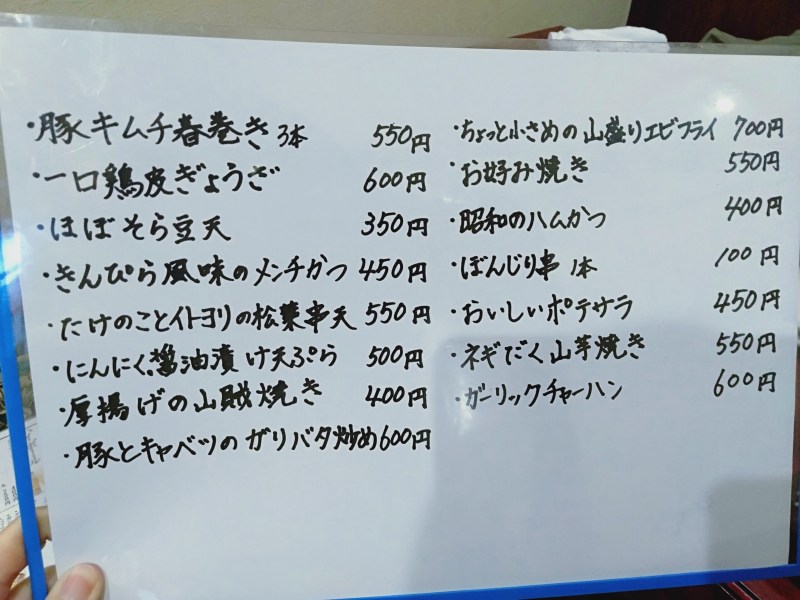 ・豚キムチ春巻き 3本 550円
・一口鶏皮ぎょうざ 600円
・ほぼそら豆天 350円
・きんぴら風味のメンチかつ 450円
・たけのことイトヨリの松葉串天 550円
・にんにく醤油漬け天ぷら 500円
・厚揚げの山賊焼き 400円
・豚とキャベツのガリバタ炒め 600円
・ちょっと小さめの山盛りエビフライ 700円
・お好み焼き 550円
・昭和のハムかつ 400円
・ぼんじり串 1本 100円
・おいしいポテサラ 450円
・ネギだく山芋焼き 550円
・ガーリックチャーハン 600円